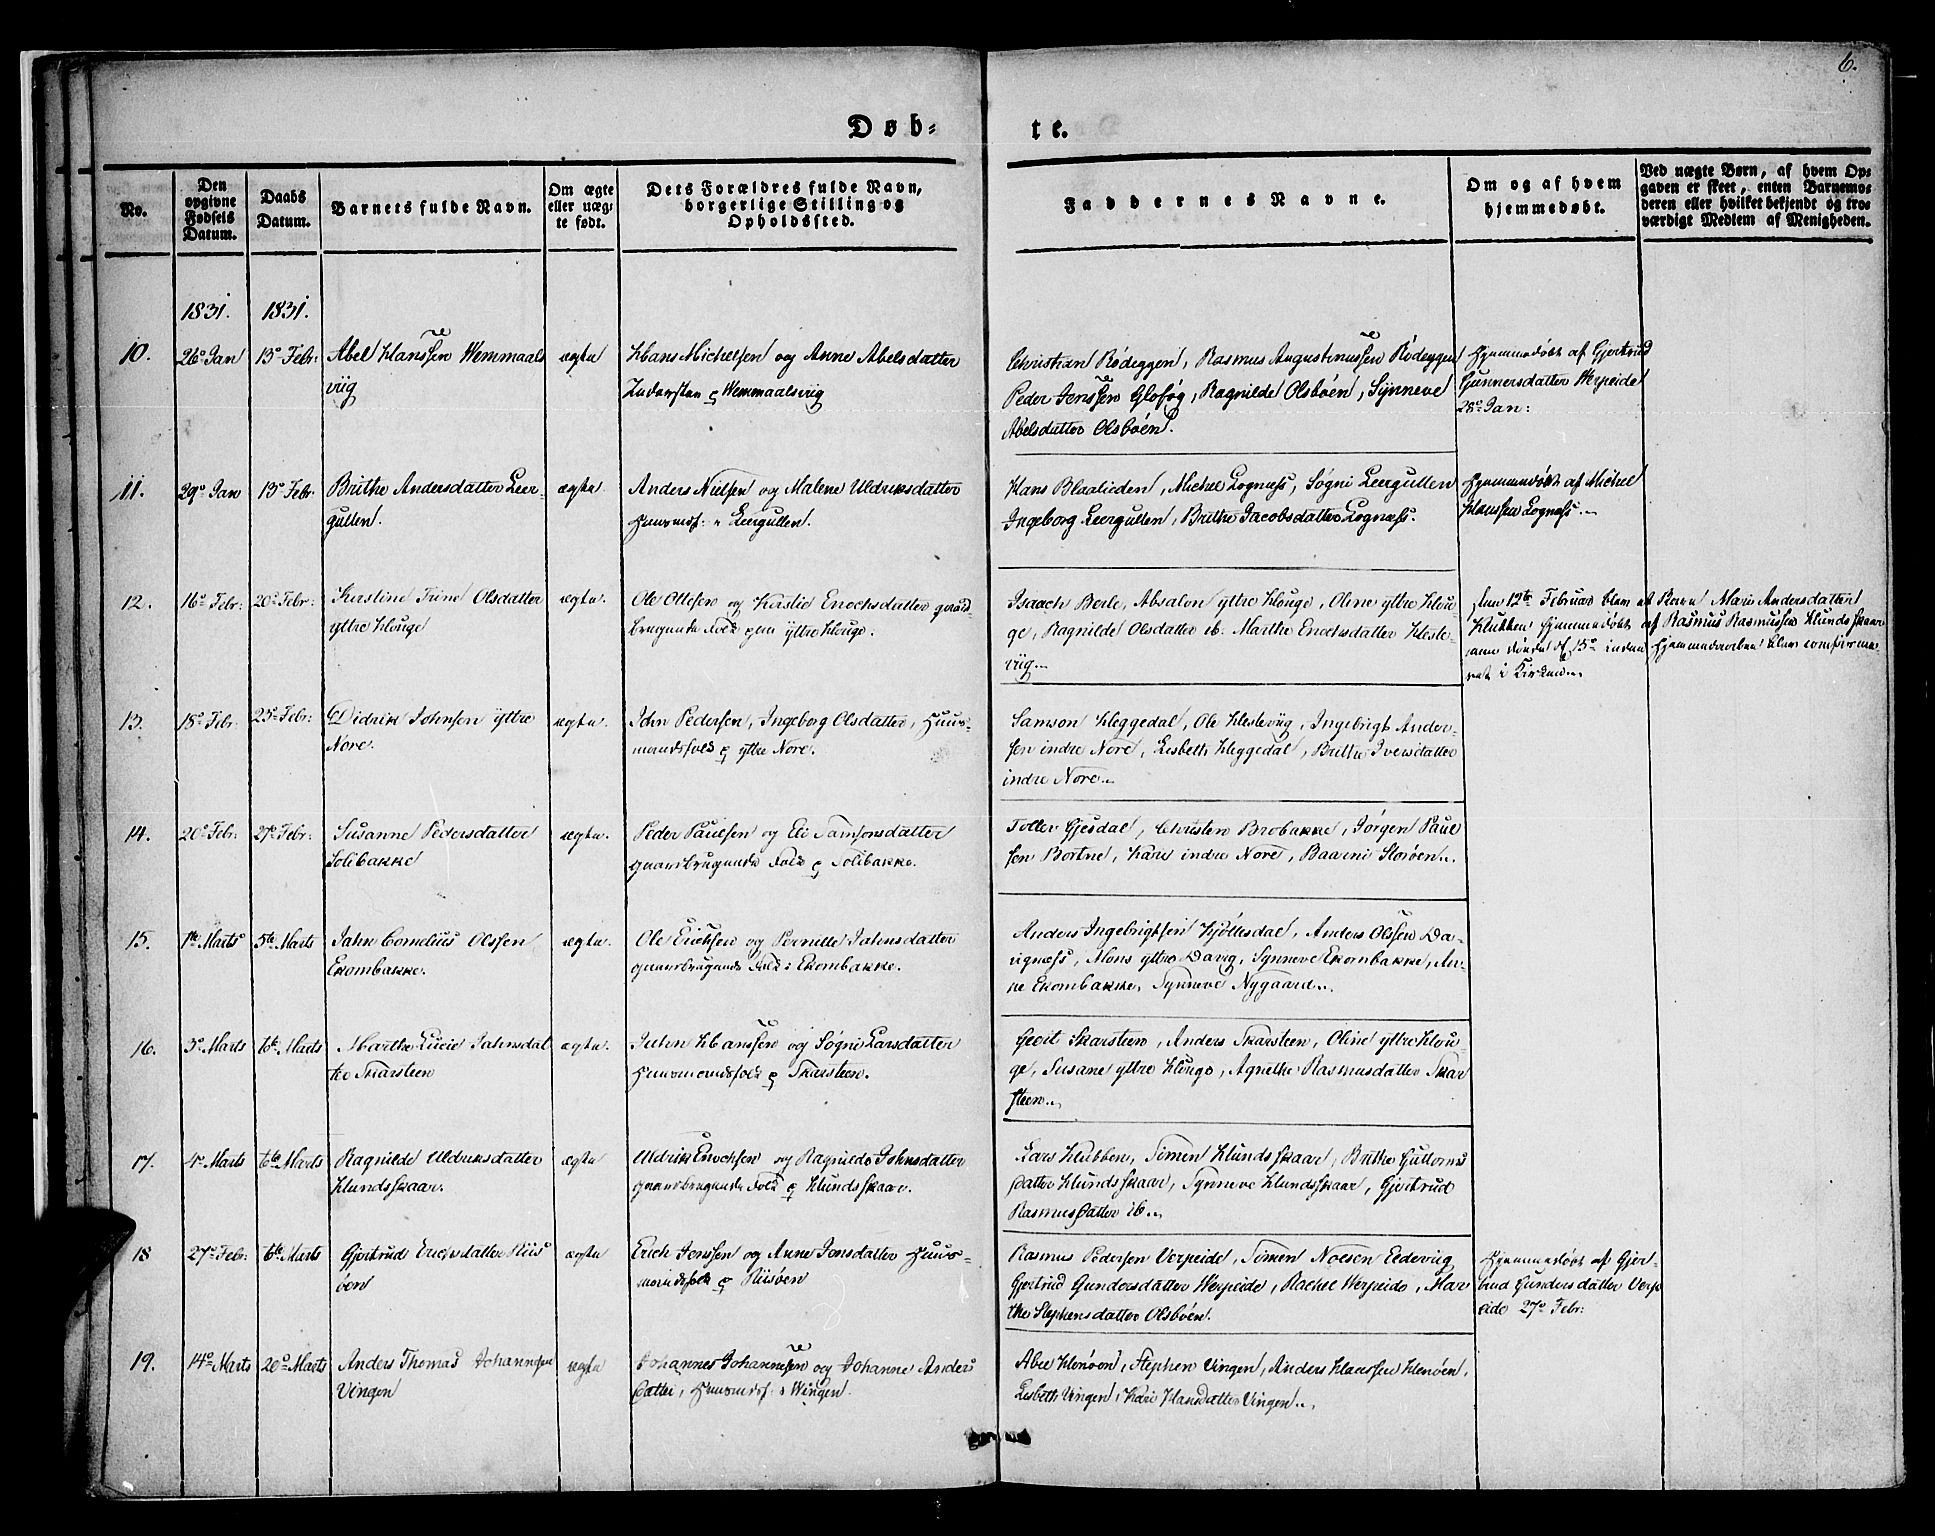 6.
Døb-
te.
No.
Den opgivne Fødsels Datum.
Daabs Datum.
Barnets fulde Navn.
Om ægte eller næg-te født.
Dets Forældres fulde Navn, borgerlige Stilling og Opholdssted.
Faddernes Navne.
Om og af hvem hjemmedøbt.
Ved nægte Børn, af hvem Op-gaven er skeet, enten Barnemo-deren eller hvilket bekjendt og tro-værdigt Medlem af Menigheden.
1831. 1831.
10. 26° Jan 13° Febr: Abel Hanssen Wemmaals
viig
ægte
Hans Michelsen og Anne Abelsdatter
Inderster Wemmaalsviig
Christian Rødeggen, Rasmus Augustinussen Rødeggen
Peder Jenssen Glofog, Ragnilde Olsbøen, Synneve
Abelsdatter Olsbøen.
Hjemmedøbt af Gjertrud
Gunnersdatter Werpeide
28° Jan:
11. 29° Jan 13° Febr. Brithe Andersdatter Leer-
gullen.
ægte.
Anders Nielsen og Malene Uldriksdatter
Huusmdsf: Leergullen.
Hans Blaalieden, Michel Lognæss, Søgni Leergullen
Ingeborg Leergullen, Brithe Jacobsdatter Lognæss.
Hjemmedøbt af Michel
Hanssen Lognæss.
12. 16° Febr: 20° Febr: Kirstine Trine Olsdatter
yttre Houge
ægte.
Ole Ottesen og Kirstie Enochsdatter gaard
brugende Folk yttre Houge.
Isaach Berle, Absalon yttre Houge, Oline yttre Hou-
ge, Ragnilde Olsdatter ib. Marthe Enochsdatter Heste-
viig
den 12te Februar blev et Barn Maris Andersdatter
Klubben Hjemmedøbt af Rasmus Rasmussen Hundsskaar
men døede d. 15° inden Hjemmedaaben blev confirme-
ret i Kirken.
13. 18° Febr. 25° Febr: Didrik Johnsen yttre
Nore.
ægte.
John Pedersen, Ingeborg Olsdatter, Huus-
mandsfolk yttre Nore.
Samson Heggedal, Ole Hesteviig, Ingebrigt Ander-
sen indre Nore, Lisbeth Heggedal, Brithe Iversdatter
indre Nore.
14. 20° Febr. 27° Febr: Susanne Pedersdatter
Solibakke
ægte.
Peder Paulsen og Eli Samsonsdatter
gaardbrugende Folk Solibakke.
Toller Gjesdal, Christen Brobakke, Jørgen Paul
sen Bortne, Kari indre Nore, Baarni Storøen.
15. 1te Marts 5te Marts Jahn Cornelius Olssen
Ekornbakke.
ægte.
Ole Erichsen og Pernille Jahnsdatter
gaardbrugende Folk Ekornbakke.
Anders Ingebrigtsen Hjøllesdal, Anders Olssen Da-
vignæss, Mons yttre Davig, Synneve Ekornbakke, An-
ne Ekornbakke, Synneve Nygaard.
16. 3° Marts 6te Marts Marthe Lucie Jahnsdat
ter Skarsteen
ægte.
Jahn Hanssen og Søgni Larsdatter
Huusmandsfolk Skarsteen.
Geert Skarsteen, Anders Skarsteen, Oline yttre Hou-
ge, Susane yttre Houge, Agnethe Rasmusdatter Skar
steen.
17. 4° Marts 6te Marts Ragnilde Uldriksdatter
Hundsskaar.
ægte
Uldrik Enochsen og Ragnilde Johnsdatter
gaardbrugende Folk Hundsskaar.
Lars Klubben, Simen Hundsskaar, Brithe Guttorms
datter Hundsskaar, Synneve Hundsskaar, Gjertrud
Rasmusdatter ib.
18 27° Febr: 6te Marts Gjertrud Erichsdatter Riis
øen
ægte
Erich Jenssen og Anne Jonsdatter Huus-
mandsfolk Riisøen
Rasmus Pedersen Verpeide, Simen Noesen Eedeviig
Gjertrud Gundersdatter Werpeide, Rachel Werpeide, Mar
the Stephensdatter Olsbøen.
Hjemmedøbt af Gjer-
trud Gundersdatter Verp
eide 27° Febr:
19. 14° Marts 20° Marts Anders Thomas Johannesen
Vingen
ægte
Johannes Johannesen og Johanne Anders
datter, Huusmdsf: Wingen.
Abel Henøen, Stephen Vingen, Anders Hanssen Henøen,
Lisbeth Vingen, Kari Hansdatter Vingen.